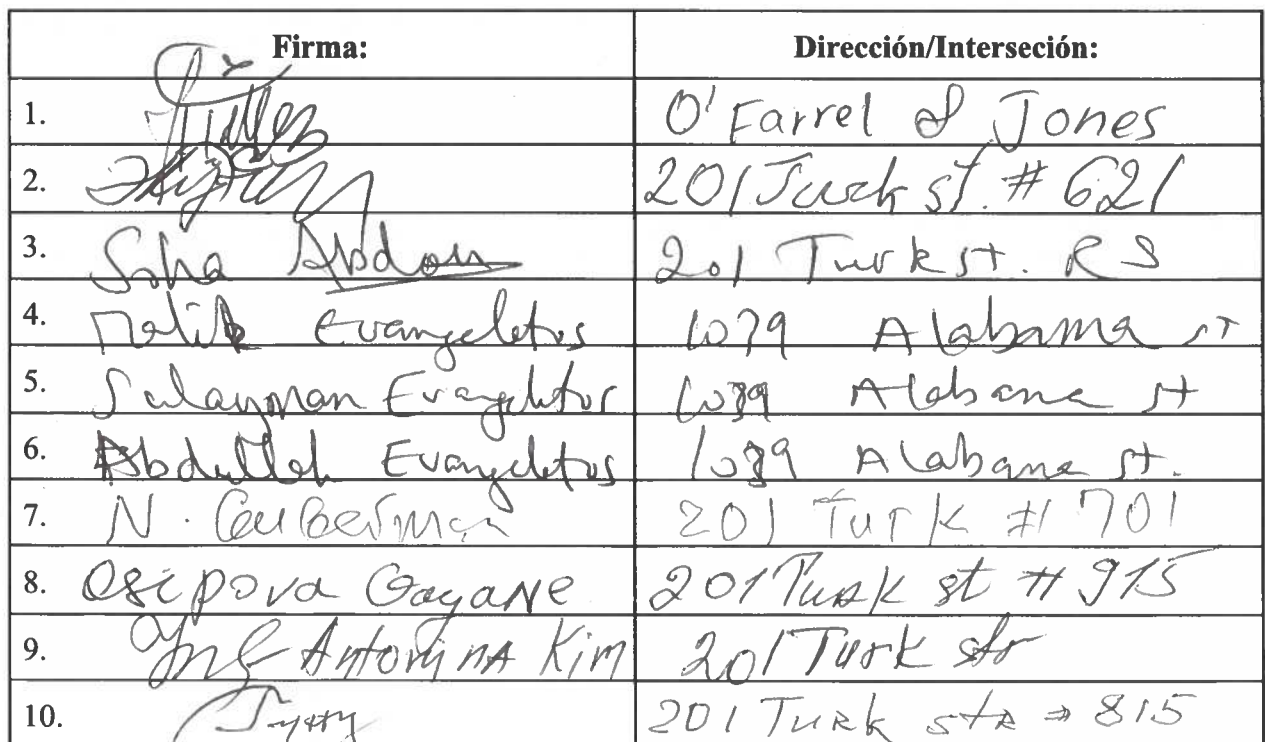 Firma: Dirección/Interseción:
1. O'Farrel & Jones
2. 201 Turk st. # 621
3. Soha Abdou 201 Turk st. R S
4. Malik Evangeletos 1039 Alabama st
5. Sulayman Evangeletos 1039 Alabama st
6. Abdullah Evangeletos 1039 Alabama st.
7. N. 201 Turk # 701
8. Osipova Gayane 201 Turk st # 915
9. Antonina Kim 201 Turk str
10. 201 Turk str # 815